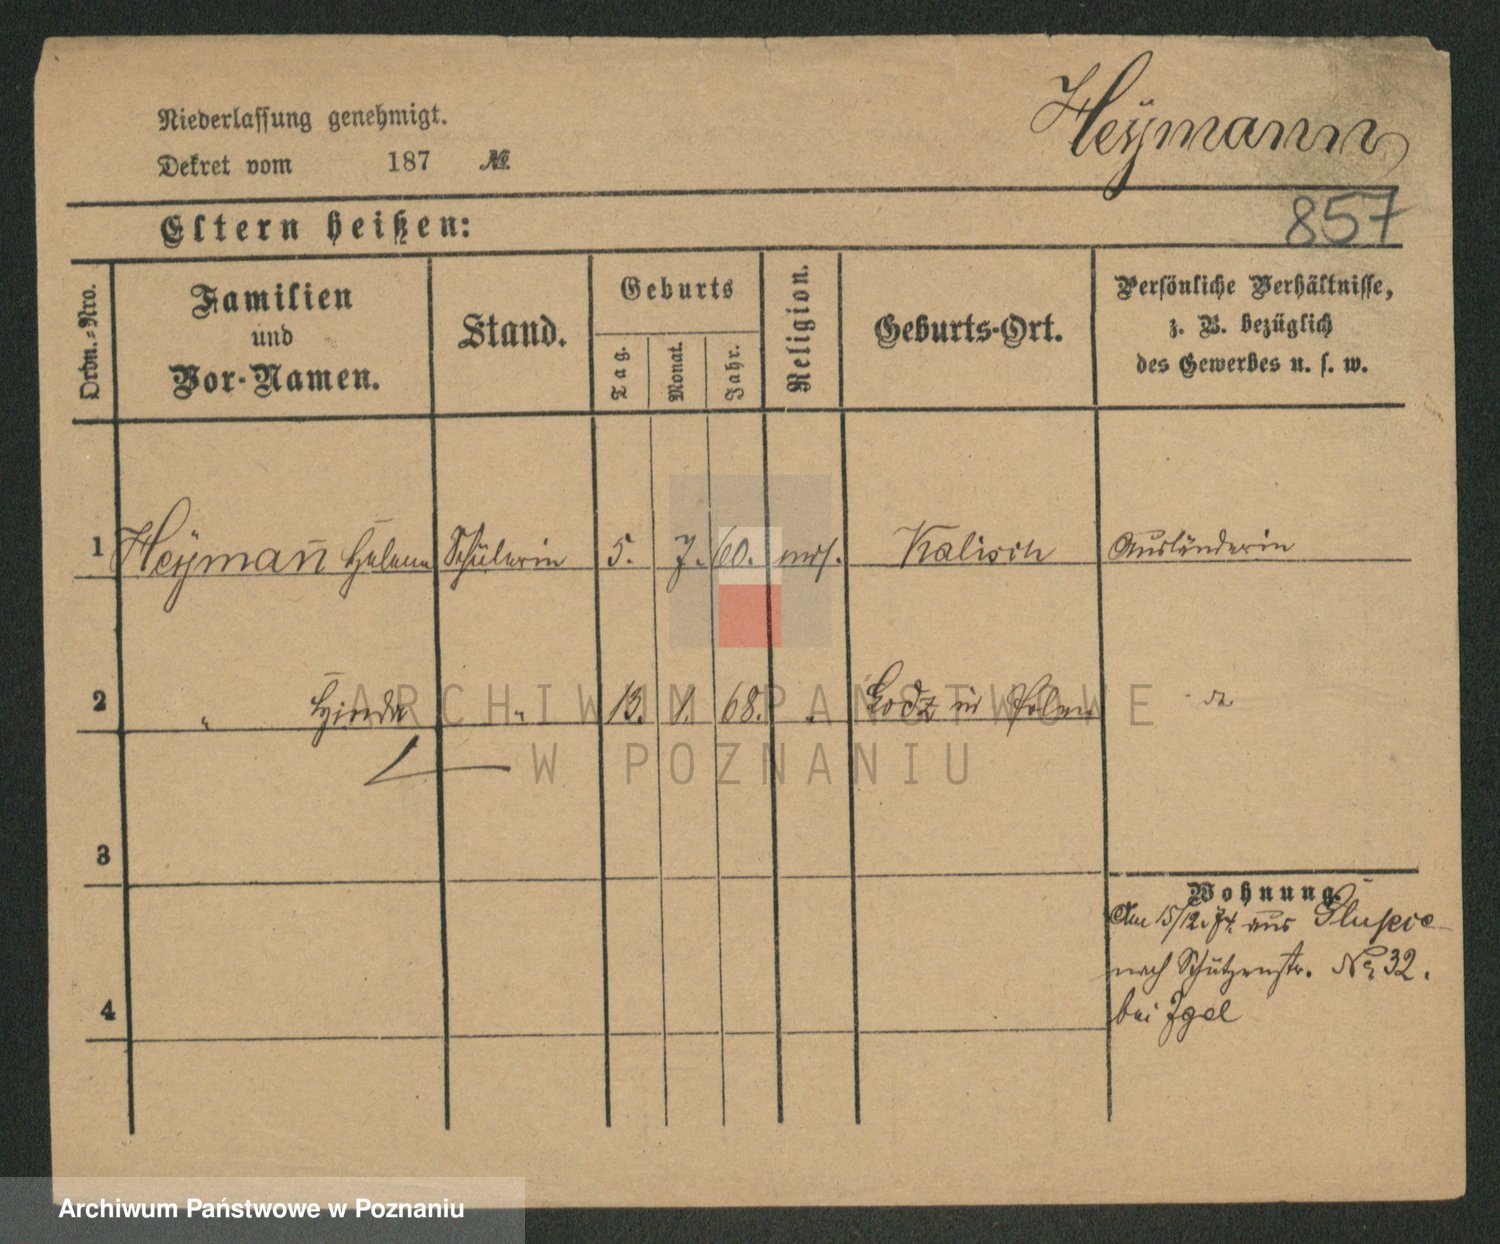 Heymann
Niederlassung genehmigt.
Dekret vom 187 №
857
Eltern heißen:
Ordn.-Nro.
Familien
und
Vor-Namen.
Stand.
Geburts
Tag.
Monat.
Jahr.
Religion.
Geburts-Ort.
Persönliche Verhältnisse,
z. B. bezüglich
des Gewerbes u. s. w.
1 Heymañ Helene Schülerin 5. 7. 60. mos. Kalisch Ausländerin
2 " Hinda " 13. 1. 68. " Lodz in Polen do
3
Wohnung.
Am 15/12. 74. aus Slupce
nach Schützenstr. No 32.
bei Igel
4
ARCHIWUM PAŃSTWOWE
W POZNANIU
Archiwum Państwowe w Poznaniu